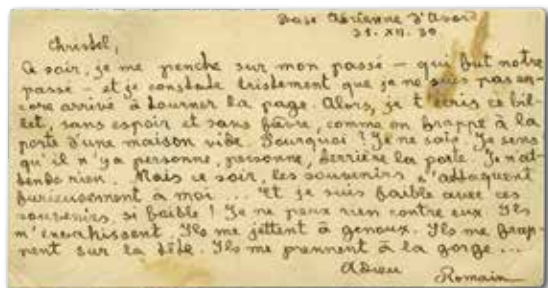 Base Aérienne d'Avord
31. XII. 39
Christel,
Ce soir, je me penche sur mon passé — qui fut notre
passé — et je constate tristement que je ne suis pas en-
core arrivé à tourner la page. Alors, je t'écris ce bil-
let, sans espoir et sans fièvre, comme on frappe à la
porte d'une maison vide. Pourquoi? Je ne sais. Je sens
qu'il n'y a personne, personne, derrière la porte. Je n'at-
tends rien. Mais ce soir, les souvenirs s'attaquent
furieusement à moi... Et je suis faible avec ces
souvenirs, si faible! Je ne peux rien contre eux. Ils
m'envahissent. Ils me jettent à genoux. Ils me frap-
pent sur la tête. Ils me prennent à la gorge...
Adieu
Romain